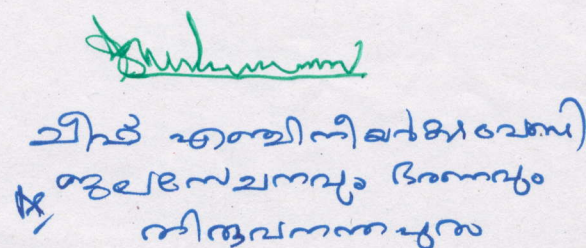 ചീഫ് എഞ്ചിനീയർക്കുവേണ്ടി
ജലസേചനവും ഭരണവും
തിരുവനന്തപുരം